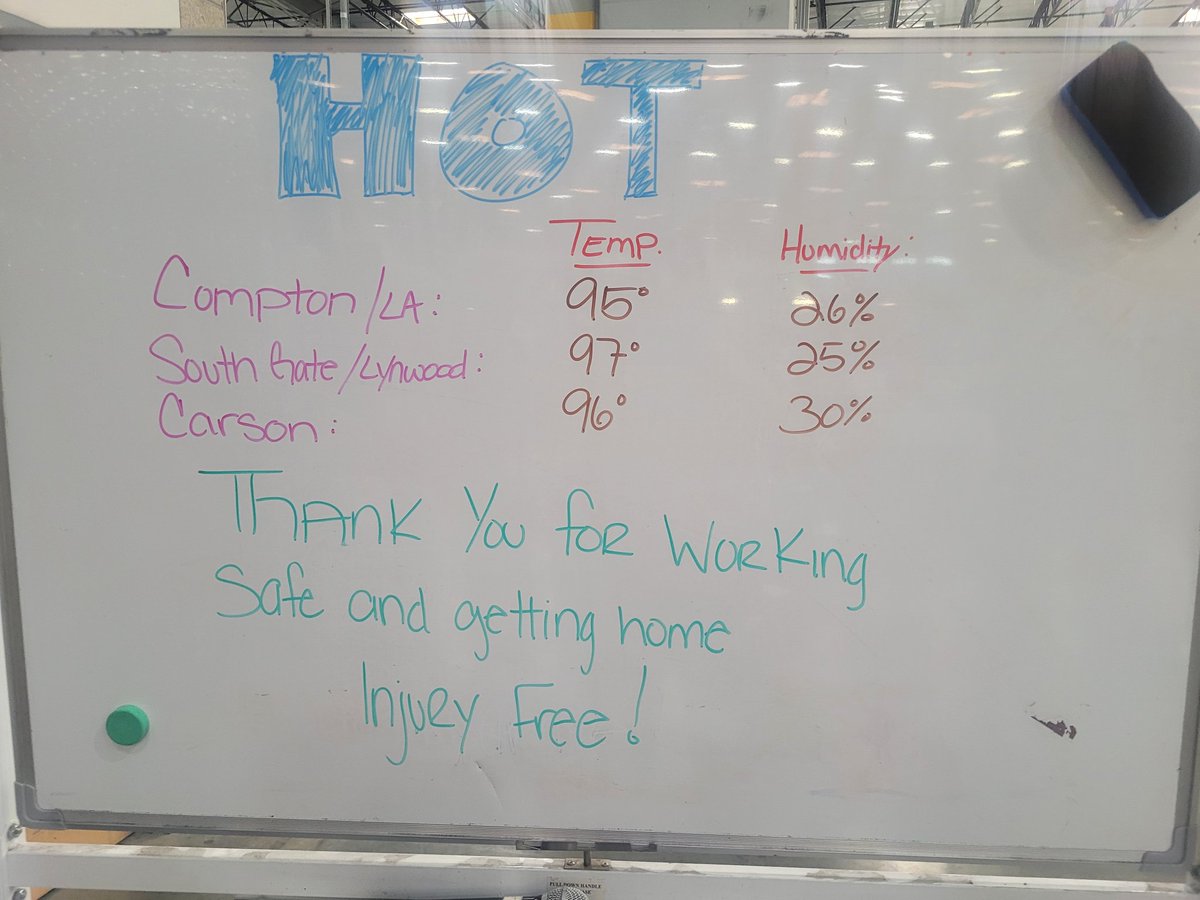 HOT
Temp. Humidity:
Compton/LA: 95° 26%
South Gate/Lynwood: 97° 25%
Carson: 96° 30%
Thank You for Working
Safe and getting home
Injury Free!
PULL DOWN HANDLE